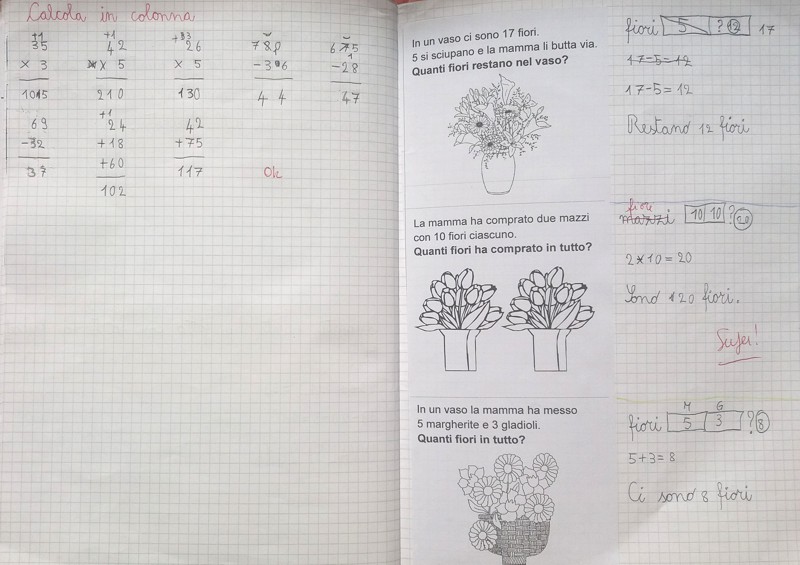 Calcola in colonna
35 42 26
× 3 × 5 × 5
-28
1015 210 130 44 47
+1
69 24 42
-32 +18 +75
37 +60 117 Ok
102
In un vaso ci sono 17 fiori.
5 si sciupano e la mamma li butta via.
Quanti fiori restano nel vaso?
fiori 5 ? 12 17
17-5=12
17-5=12
Restano 12 fiori
La mamma ha comprato due mazzi
con 10 fiori ciascuno.
Quanti fiori ha comprato in tutto?
mazzi 10 10 ? 20
2×10=20
Sono 120 fiori.
Super!
In un vaso la mamma ha messo
5 margherite e 3 gladioli.
Quanti fiori in tutto?
M G
fiori 5 3 ? 8
5+3=8
Ci sono 8 fiori